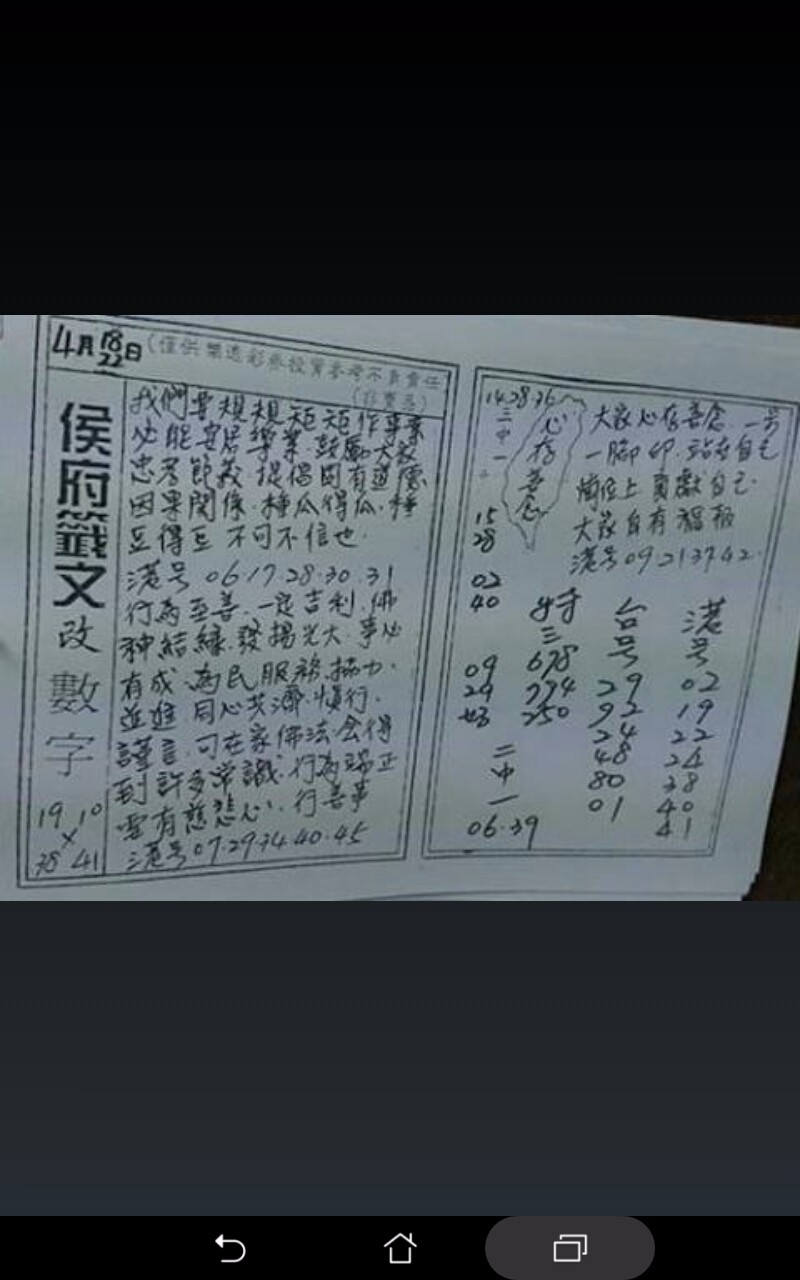 4月18 22日(僅供樂透彩券投資參考不負責任
(非賣品)
侯府籤文
改數字
19 10
×
38 41
我們要規規矩矩作事業
必能安居樂業.鼓勵大家
忠孝節義.提倡固有道德.
因果關係.種瓜得瓜.種
豆得豆 不可不信也.
港号06.17.28.30.31
行為至善.一定吉利.佛
神結緣.發揚光大.事必
有成.為民服務.協力.
並進.同心共濟.慎行.
謹言.可在家佛法会得
到許多常識.行為端正
要有慈悲心.行善事
港号07.29.34.40.45
14.28.36
三中一
15
28
02
40
09
29
二中一
06.39
心存善念
大家心存善念.一步
一腳印.站在自己
崗位上貢獻自己.
大家自有福報
港号09213742.
特三
678
774
250
台号
29
92
24
48
80
01
港号
02
19
22
24
38
40
41